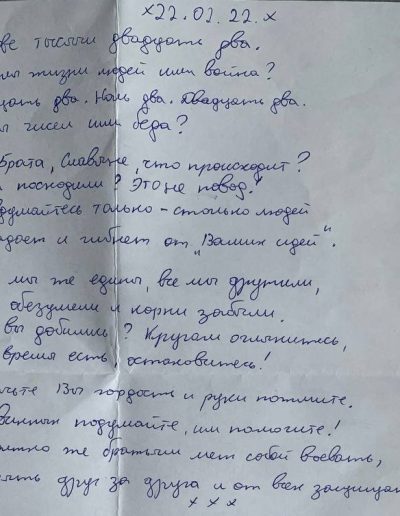 х22.02.22.х
две тысячи двадцать два.
жизни людей или война?
два. Ноль два. Двадцать два.
чисел или беда?
Брата, Славяне, что происходит?
посходили? Это не повод!
думайтесь только - столько людей
и гибнет от "Ваших идей".
мы же едины, все мы дружили,
обезумели и корни забыли.
вы добились? Кругом оглянитесь,
время есть, остановитесь!
Вы гордость и руки пожмите.
подумайте, им помогите!
же братьям меж собой воевать,
друг за друга и от всех защищат
х х х